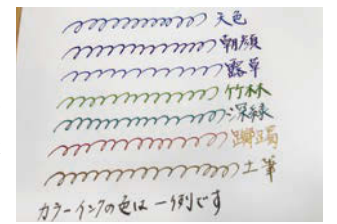 天色
朝顔
露草
竹林
深緑
躑躅
土筆
カラーインクの色は一例です